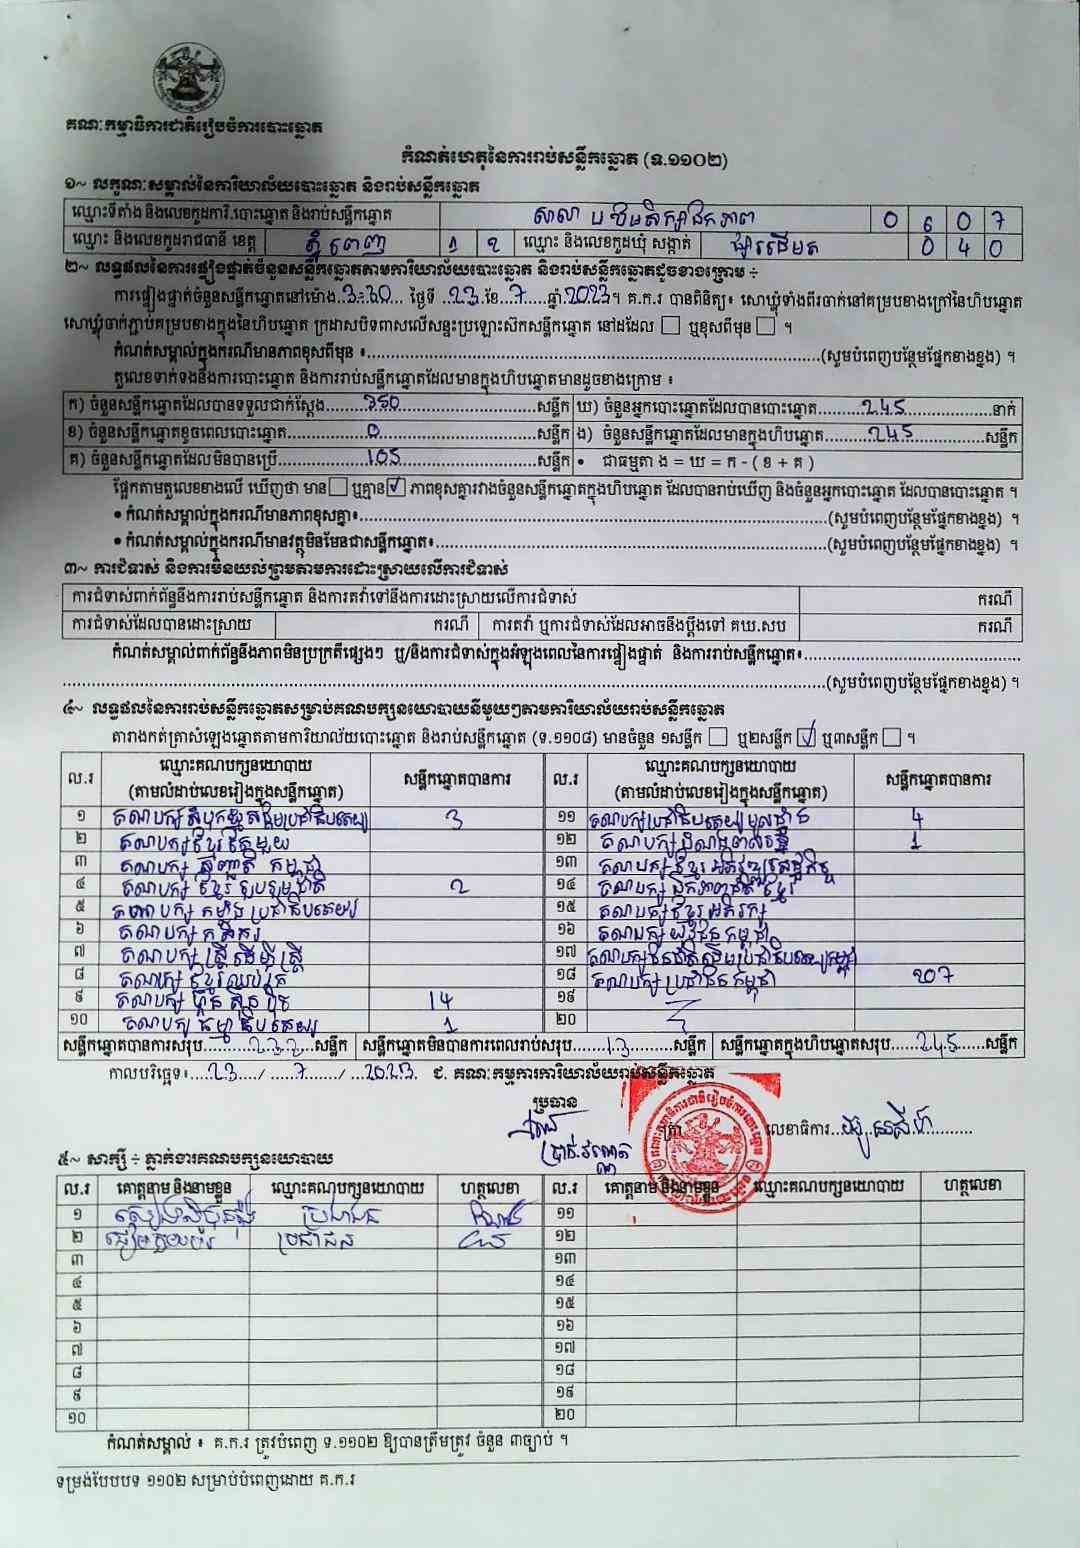 គណៈកម្មាធិការជាតិរៀបចំការបោះឆ្នោត
កំណត់ហេតុនៃការរាប់សន្លឹកឆ្នោត (ទ.១១០២)
១~ លក្ខណៈសម្គាល់នៃការិយាល័យបោះឆ្នោត និងរាប់សន្លឹកឆ្នោត
ឈ្មោះទីតាំង និងលេខកូដការិ.បោះឆ្នោត និងរាប់សន្លឹកឆ្នោត សាលា បឋមសិក្សាឯកភាព 0 6 0 7
ឈ្មោះ និងលេខកូដរាជធានី ខេត្ត ភ្នំពេញ 1 2 ឈ្មោះ និងលេខកូដឃុំ សង្កាត់ 0 4 0
២~ លទ្ធផលនៃការផ្ទៀងផ្ទាត់ចំនួនសន្លឹកឆ្នោតតាមការិយាល័យបោះឆ្នោត និងរាប់សន្លឹកឆ្នោតដូចខាងក្រោម ÷
ការផ្ទៀងផ្ទាត់ចំនួនសន្លឹកឆ្នោតនៅម៉ោង 3:30 ថ្ងៃទី 23 ខែ 7 ឆ្នាំ 2023 ។ គ.ក.រ បានពិនិត្យ៖ សោឃ្លុំទាំងពីរចាក់នៅគម្របខាងក្រៅនៃហិបឆ្នោត
សោឃ្លុំចាក់ភ្ជាប់គម្របខាងក្នុងនៃហិបឆ្នោត ក្រដាសបិទពាសលើសន្ទះប្រឡោះស៊កសន្លឹកឆ្នោត នៅដដែល □ ឬខុសពីមុន □ ។
កំណត់សម្គាល់ក្នុងករណីមានភាពខុសពីមុន ៖ (សូមបំពេញបន្ថែមផ្នែកខាងខ្នង) ។
តួលេខទាក់ទងនឹងការបោះឆ្នោត និងការរាប់សន្លឹកឆ្នោតដែលមានក្នុងហិបឆ្នោតមានដូចខាងក្រោម ៖
ក) ចំនួនសន្លឹកឆ្នោតដែលបានទទួលជាក់ស្តែង 350 សន្លឹក ឃ) ចំនួនអ្នកបោះឆ្នោតដែលបានបោះឆ្នោត 245 នាក់
ខ) ចំនួនសន្លឹកឆ្នោតខូចពេលបោះឆ្នោត 0 សន្លឹក ង) ចំនួនសន្លឹកឆ្នោតដែលមានក្នុងហិបឆ្នោត 245 សន្លឹក
គ) ចំនួនសន្លឹកឆ្នោតដែលមិនបានប្រើ 105 សន្លឹក • ជាធម្មតា ង = ឃ = ក - ( ខ + គ )
ផ្អែកតាមតួលេខខាងលើ ឃើញថា មាន □ ឬគ្មាន ☑ ភាពខុសគ្នារវាងចំនួនសន្លឹកឆ្នោតក្នុងហិបឆ្នោត ដែលបានរាប់ឃើញ និងចំនួនអ្នកបោះឆ្នោត ដែលបានបោះឆ្នោត ។
• កំណត់សម្គាល់ក្នុងករណីមានភាពខុសគ្នា៖ (សូមបំពេញបន្ថែមផ្នែកខាងខ្នង) ។
• កំណត់សម្គាល់ក្នុងករណីមានវត្ថុមិនមែនជាសន្លឹកឆ្នោត៖ (សូមបំពេញបន្ថែមផ្នែកខាងខ្នង) ។
៣~ ការជំទាស់ និងការមិនយល់ព្រមតាមការដោះស្រាយលើការជំទាស់
ការជំទាស់ពាក់ព័ន្ធនឹងការរាប់សន្លឹកឆ្នោត និងការតវ៉ាទៅនឹងការដោះស្រាយលើការជំទាស់ ករណី
ការជំទាស់ដែលបានដោះស្រាយ ករណី ការតវ៉ា ឬការជំទាស់ដែលអាចនឹងប្តឹងទៅ គឃ.សប ករណី
កំណត់សម្គាល់ពាក់ព័ន្ធនឹងភាពមិនប្រក្រតីផ្សេងៗ ឬ/និងការជំទាស់ក្នុងអំឡុងពេលនៃការផ្ទៀងផ្ទាត់ និងការរាប់សន្លឹកឆ្នោត៖
(សូមបំពេញបន្ថែមផ្នែកខាងខ្នង) ។
៤~ លទ្ធផលនៃការរាប់សន្លឹកឆ្នោតសម្រាប់គណបក្សនយោបាយនីមួយៗតាមការិយាល័យរាប់សន្លឹកឆ្នោត
តារាងកត់ត្រាសំឡេងឆ្នោតតាមការិយាល័យបោះឆ្នោត និងរាប់សន្លឹកឆ្នោត (ទ.១១០៨) មានចំនួន ១សន្លឹក □ ឬ២សន្លឹក ☑ ឬ៣សន្លឹក □ ។
ល.រ ឈ្មោះគណបក្សនយោបាយ (តាមលំដាប់លេខរៀងក្នុងសន្លឹកឆ្នោត) សន្លឹកឆ្នោតបានការ ល.រ ឈ្មោះគណបក្សនយោបាយ (តាមលំដាប់លេខរៀងក្នុងសន្លឹកឆ្នោត) សន្លឹកឆ្នោតបានការ
១ គណបក្សសំបុកឃ្មុំសង្គមប្រជាធិបតេយ្យ 3 ១១ គណបក្សប្រជាធិបតេយ្យមូលដ្ឋាន 4
២ គណបក្សខ្មែរតែមួយ ១២ គណបក្ស 1
៣ គណបក្ស កម្ពុជា ១៣ គណបក្សខ្មែរអភិវឌ្ឍន៍សេដ្ឋកិច្ច
៤ គណបក្ស ខ្មែររួបរួមជាតិ 2 ១៤ គណបក្ស ឯកភាពជាតិខ្មែរ
៥ គណបក្ស កម្លាំងប្រជាធិបតេយ្យ ១៥ គណបក្សខ្មែរអភិរក្ស
៦ គណបក្ស កសិករ ១៦ គណបក្ស យុវជនកម្ពុជា
៧ គណបក្ស ស្ត្រីដើម្បីស្ត្រី ១៧
៨ គណបក្ស ខ្មែរឈប់ក្រ ១៨ គណបក្ស ប្រជាជនកម្ពុជា 207
៩ គណបក្ស ហ្វ៊ុនស៊ិនប៉ិច 14 ១៩
១០ គណបក្ស ធម្មាធិបតេយ្យ 1 ២០
សន្លឹកឆ្នោតបានការសរុប 232 សន្លឹក សន្លឹកឆ្នោតមិនបានការពេលរាប់សរុប 13 សន្លឹក សន្លឹកឆ្នោតក្នុងហិបឆ្នោតសរុប 245 សន្លឹក
កាលបរិច្ឆេទ៖ 23 / 7 / 2023 ជ. គណៈកម្មការការិយាល័យរាប់សន្លឹកឆ្នោត
ប្រធាន
ត្រា លេខាធិការ
៥~ សាក្សី ÷ ភ្នាក់ងារគណបក្សនយោបាយ
ល.រ គោត្តនាម និងនាមខ្លួន ឈ្មោះគណបក្សនយោបាយ ហត្ថលេខា ល.រ គោត្តនាម និងនាមខ្លួន ឈ្មោះគណបក្សនយោបាយ ហត្ថលេខា
១ ប្រជាជន ១១
២ ប្រជាជន ១២
៣ ១៣
៤ ១៤
៥ ១៥
៦ ១៦
៧ ១៧
៨ ១៨
៩ ១៩
១០ ២០
កំណត់សម្គាល់ ៖ គ.ក.រ ត្រូវបំពេញ ទ.១១០២ ឱ្យបានត្រឹមត្រូវ ចំនួន ៣ច្បាប់ ។
ទម្រង់បែបបទ ១១០២ សម្រាប់បំពេញដោយ គ.ក.រ